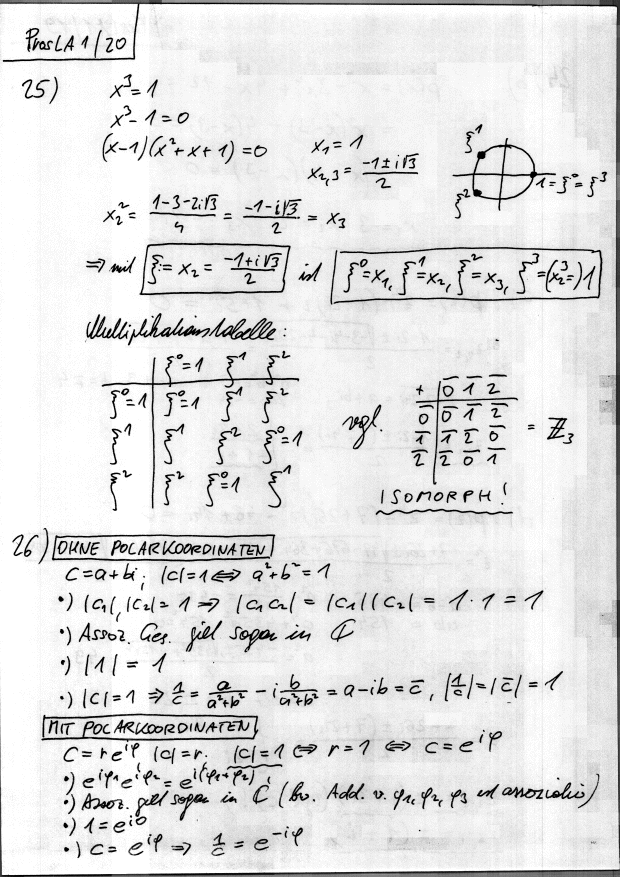 ProsLA1/20
25) x³=1
x³-1=0
(x-1)(x²+x+1)=0 x₁=1
x₂,₃=(-1±i√3)/2
ξ¹
ξ²
1=ξ⁰=ξ³
x₂²=(1-3-2i√3)/4=(-1-i√3)/2=x₃
⇒ mit ξ:=x₂=(-1+i√3)/2 ist ξ⁰=x₁, ξ¹=x₂, ξ²=x₃, ξ³=(x₂³=)1
Multiplikationstabelle:
ξ⁰=1 ξ¹ ξ²
ξ⁰=1 ξ⁰=1 ξ¹ ξ²
ξ¹ ξ¹ ξ² ξ⁰=1
ξ² ξ² ξ⁰=1 ξ¹
vgl.
+ 0̅ 1̅ 2̅
0̅ 0̅ 1̅ 2̅
1̅ 1̅ 2̅ 0̅
2̅ 2̅ 0̅ 1̅
= ℤ₃
ISOMORPH!
26) OHNE POLARKOORDINATEN
C=a+bi; |C|=1 ⇔ a²+b²=1
•) |C₁|,|C₂|=1 ⇒ |C₁C₂|=|C₁||C₂|=1·1=1
•) Assoz. Ges. gilt sogar in ℂ
•) |1|=1
•) |C|=1 ⇒ 1/c = a/(a²+b²) - i b/(a²+b²) = a-ib = c̅, |1/c|=|c̅|=1
MIT POLARKOORDINATEN
C=re^{iφ} |C|=r. |C|=1 ⇔ r=1 ⇔ C=e^{iφ}
•) e^{iφ₁}e^{iφ₂}=e^{i(φ₁+φ₂)}
•) Assoz. gilt sogar in ℂ (bzw. Add. v. φ₁,φ₂,φ₃ ist assoziativ)
•) 1=e^{i0}
•) C=e^{iφ} ⇒ 1/c=e^{-iφ}